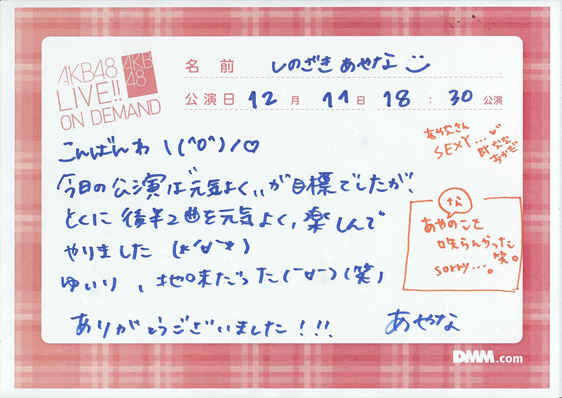 AKB48
LIVE!!
ON DEMAND
AKB
48
名前 しのざき あやな
公演日 12月 11日 18:30 公演
こんばんわ \(^o^)/♡
今日の公演は"元気よく"が目標でしたが、
とくに後半2曲を元気よく、楽しんで
やりました (*´▽`*)
ゆいり、地味だった(￣▽￣)(笑)
ありがとうございました!!!
あやな
あやなさん
SEXY...♡
BY なな
おかだ
な
あやのこと
笑。
sorry...。
DMM.com